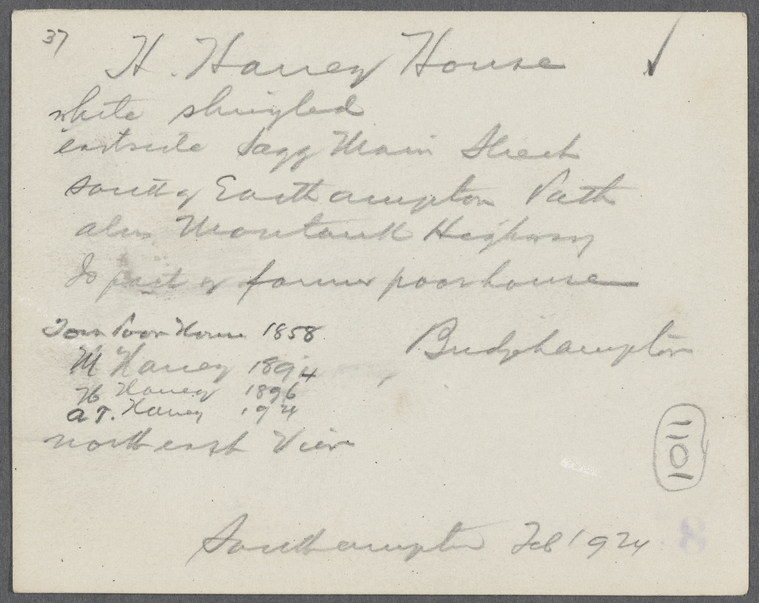 37
H. Haney House
white shingled
eastside Sagg Main Street
south of Easthampton Path
alias Montauk Highway
Is part of former poorhouse
Town Poor House 1858
M Haney 1894
H Haney 1896
A. T. Haney
Bridgehampton
northeast View
1101
Southampton Feb 1924